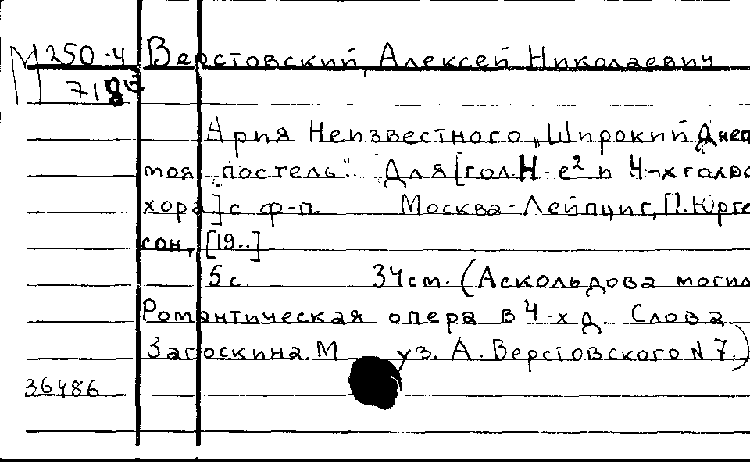 М 250-4 Верстовский, Алексей Николаевич
Ария Неизвестного „Широкий Днеп
моя постель". Для [гол. Н-е² и 4-х голос
хора] с ф-п. Москва-Лейпциг, П. Юрге
сон, [19..]
5 с. 34 см. (Аскольдова могил
Романтическая опера в 4-х д. Слова
Загоскина. М уз. А. Верстовского N 7.)
36486